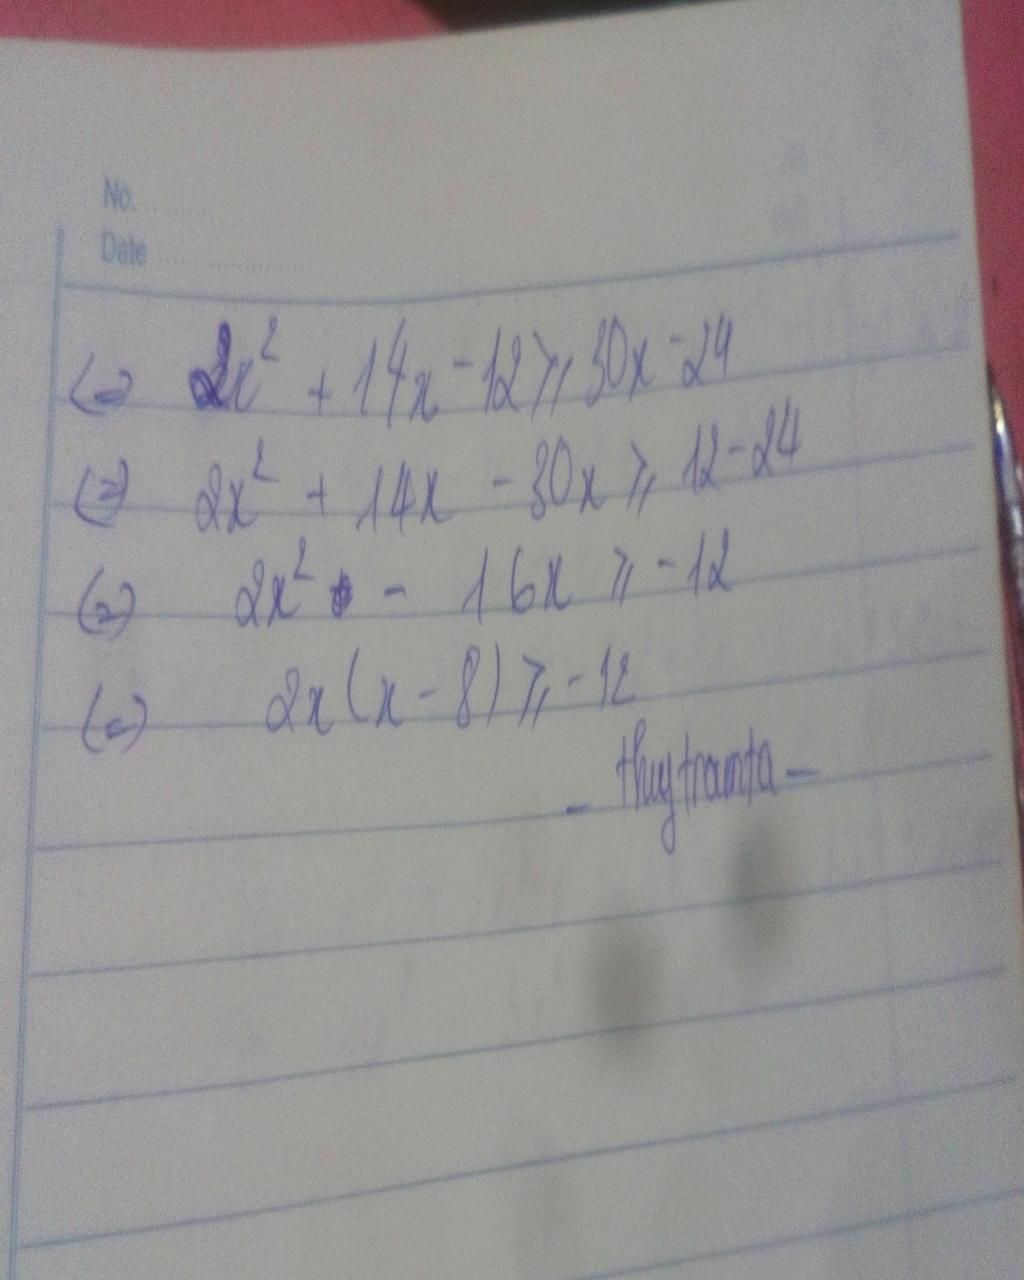 No. ............
Date ..................
(=) 2x² + 14x - 12 ⩾ 30x - 24
(=) 2x² + 14x - 30x ⩾ 12 - 24
(=) 2x² - 16x ⩾ - 12
(=) 2x(x - 8) ⩾ - 12
- thuytramta -